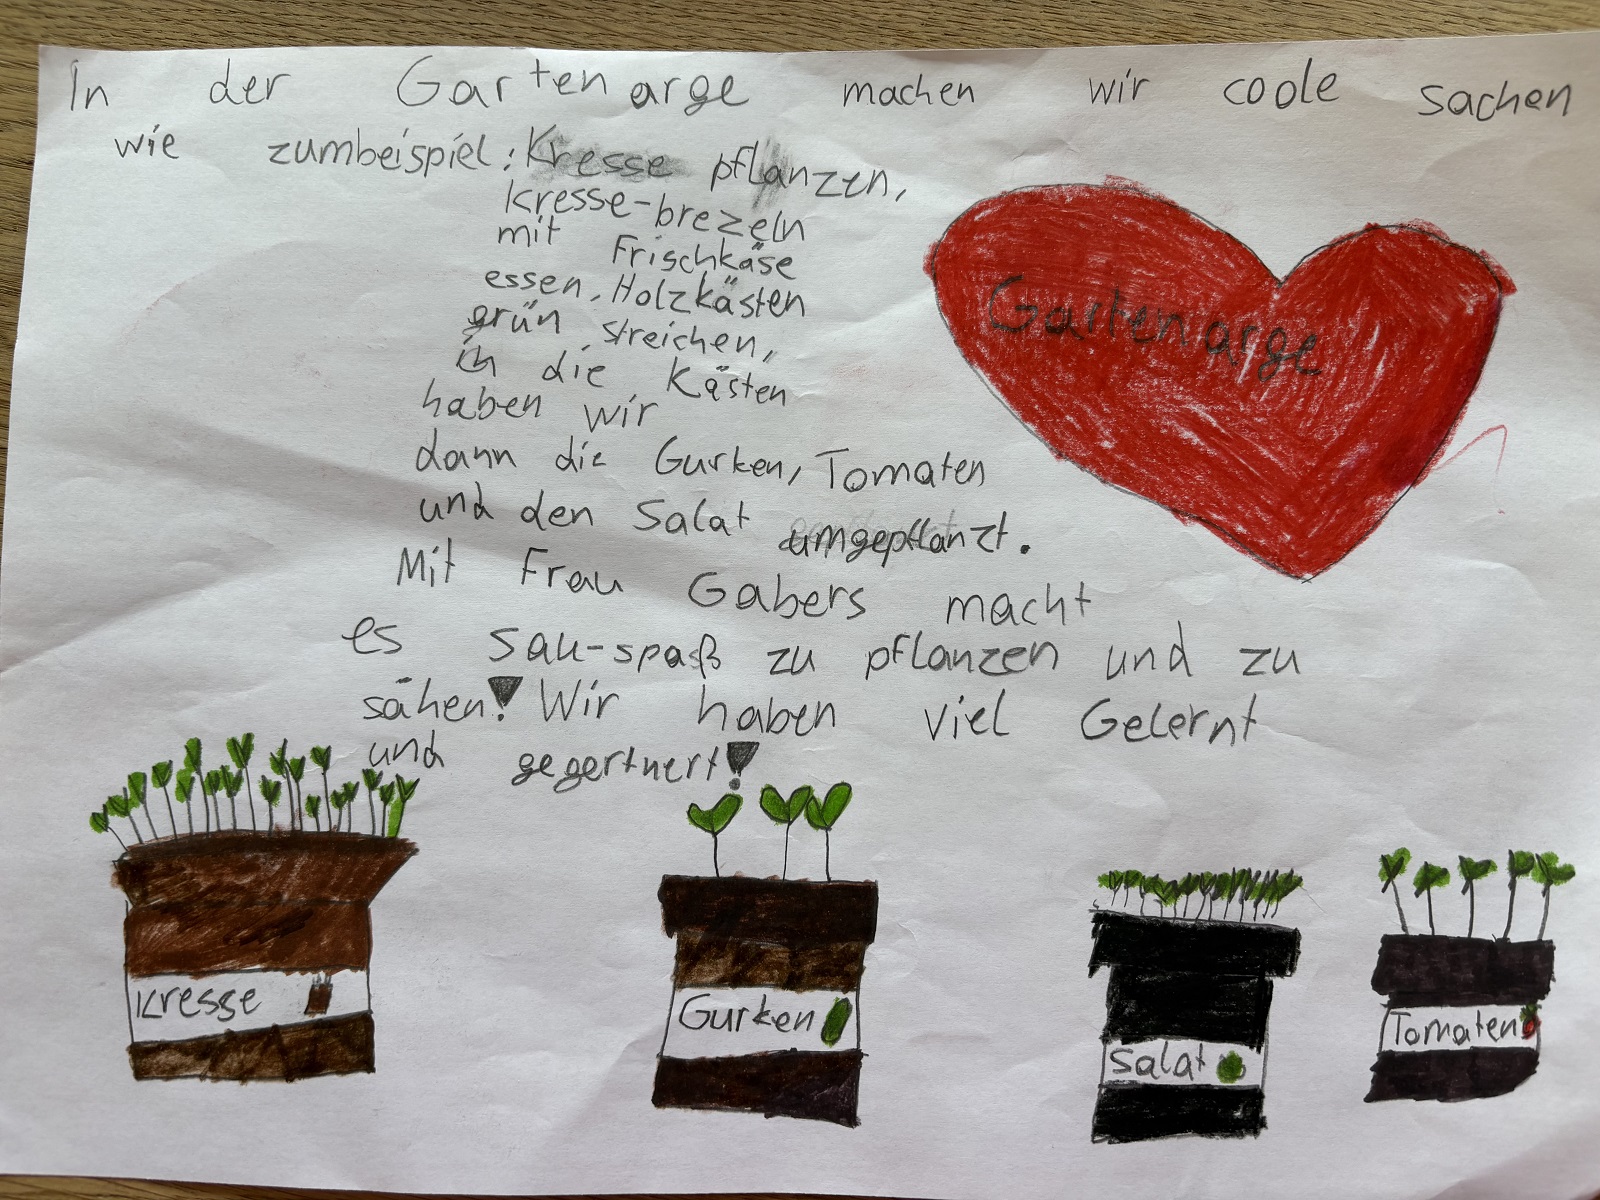 In der Gartenarge machen wir coole sachen
wie zumbeispiel: Kresse pflanzen,
kresse-brezeln
mit Frischkäse
essen, Holzkästen
grün streichen,
in die Kästen
haben wir
dann die Gurken, Tomaten
und den Salat umgepflanzt.
Mit Frau Gabers macht
es Sau-spaß zu pflanzen und zu
sähen! Wir haben viel Gelernt
und gegertnert!
Gartenarge
Kresse
Gurken
Salat
Tomaten